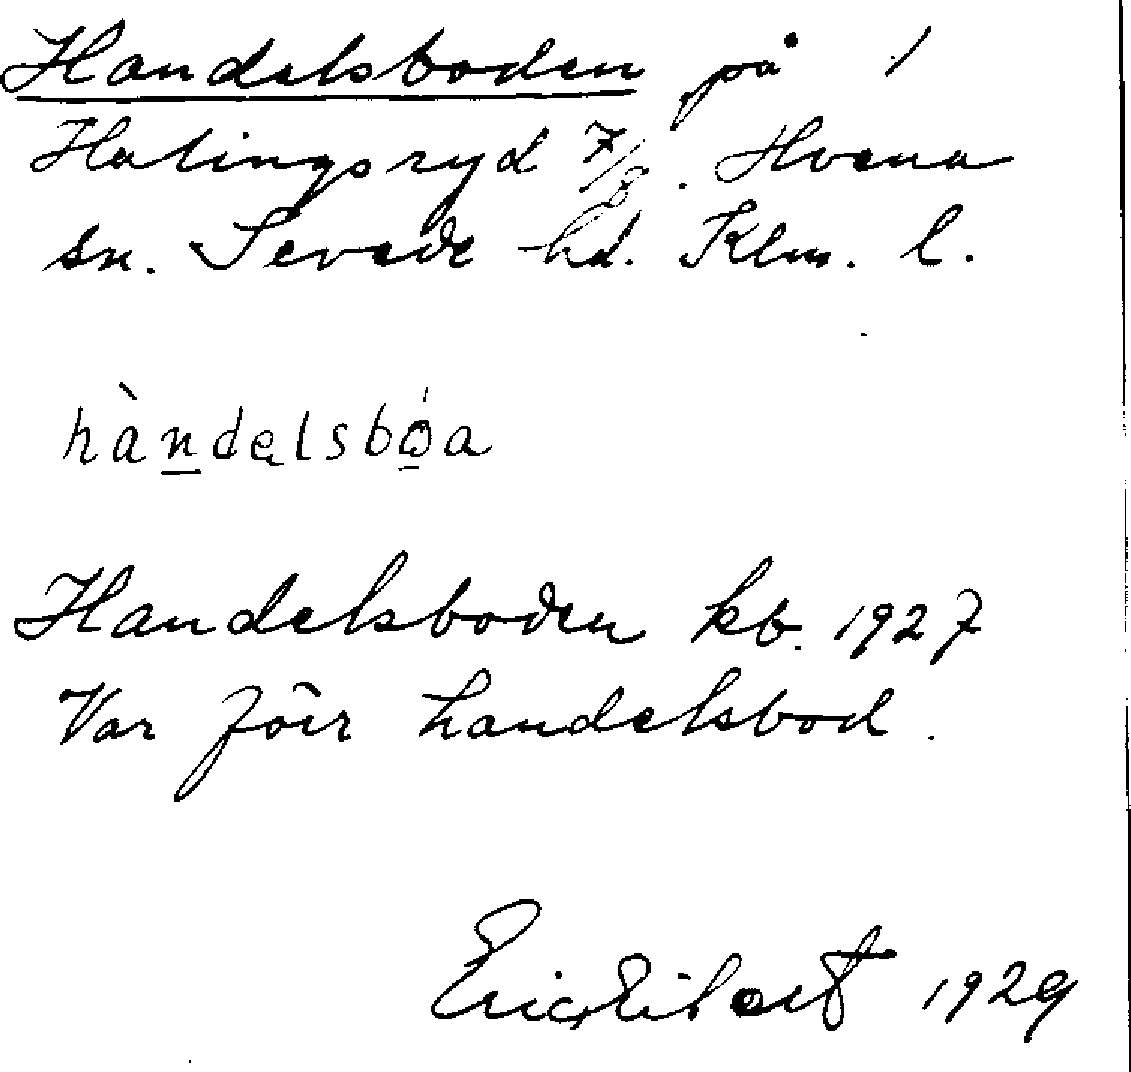 Handelsboden på 1
Hatingsryd 7/8. Hvena
sn. Sevede hd. Klm. l.
hàndelsbóa
Handelsboden kb. 1927
Var förr handelsbod.
1929